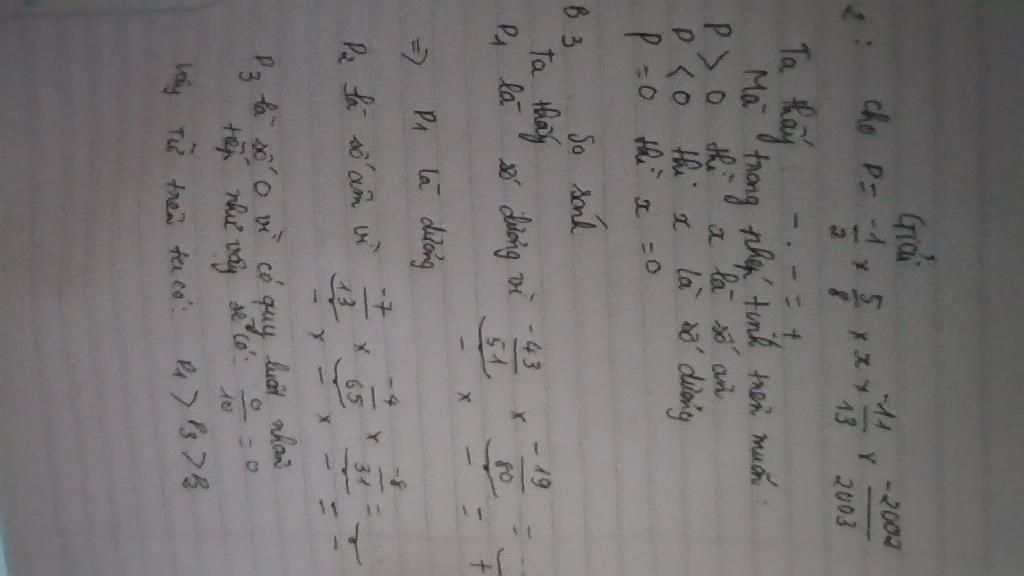 Giải
2: cho P = -1/2 x 5/8 x x x -11/13 x -2002/2003
Ta thấy - . - = +
Mà trong phép tính trên muốn:
P > 0 thì x là số âm
P < 0 thì x là số dương
P = 0 thì x = 0
B 3 So sánh
Ta thấy
P1 là số dương vì -43/51 x -19/80 =
- x - = +
=> P1 là dương
P2 là số âm vì -7/13 x -4/65 x -8/31 =
- x - x - = -
P3 là số 0 vì có quy luật
tiếp như vậy sẽ có: 0/10 = 0
Từ trên ta có: P1 > P3 > P2